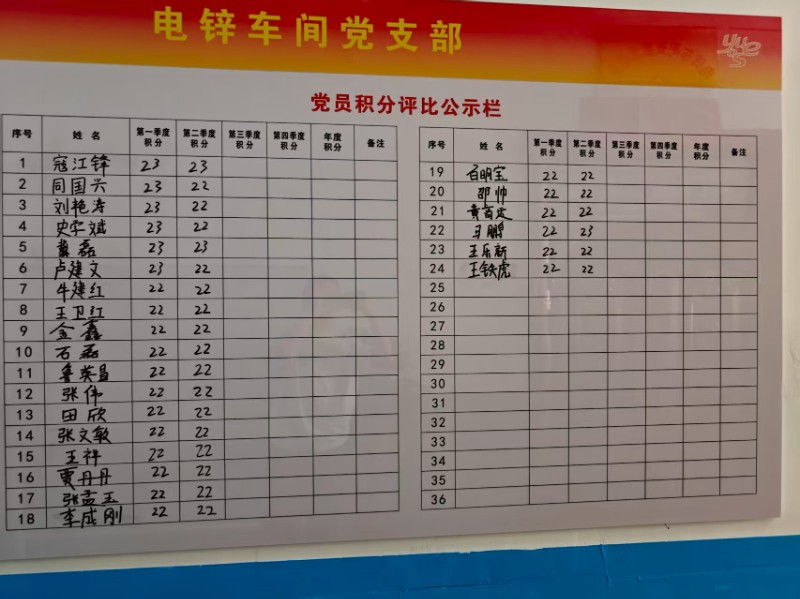 电锌车间党支部
党员积分评比公示栏
序号 姓名 第一季度积分 第二季度积分 第三季度积分 第四季度积分 年度积分 备注
1 寇江锋 23 23
2 同国兴 23 22
3 刘艳涛 23 22
4 史学斌 23 22
5 冀磊 23 23
6 卢建文 23 22
7 牛建红 22 22
8 王卫江 22 22
9 金鑫 22 22
10 石磊 22 22
11 鲁英昌 22 22
12 张伟 22 22
13 田欣 22 22
14 张文敏 22 22
15 王祥 22 22
16 贾丹丹 22 22
17 张孟玉 22 22
18 李成刚 22 22
序号 姓名 第一季度积分 第二季度积分 第三季度积分 第四季度积分 年度积分 备注
19 白明宝 22 22
20 邵帅 22 22
21 22 22
22 王鹏 22 23
23 王乐新 22 22
24 王铁虎 22 22
25
26
27
28
29
30
31
32
33
34
35
36